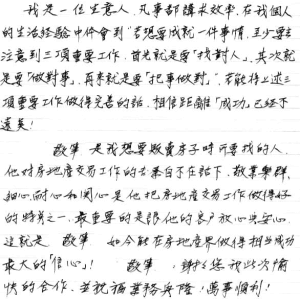 我是一位生意人,凡事都講求效率,在我個人
的生活經驗中体會到若想要成就一件事情,至少要去
注意到三項重要工作,首先就是要「找對人」,其次就
是要「做對事」,再來就是要「把事做對」,若能將上述三
項重要工作做得完善的話,相信距離「成功」已經不
遠矣!
敬華 是我想要販賣房子時所要找的人,
他對房地產交易工作的 在話下,敬業樂群,
細心耐心和關心是他把房地產交易工作做得好
的特質之一,最重要的是跟他的客戶放心與安心,
這就是 敬華 如今能在房地產界做得相當成功
最大的「信心」! 敬華 ,謝謝您 此次愉
快的合作,並祝福業務興隆,萬事順利!